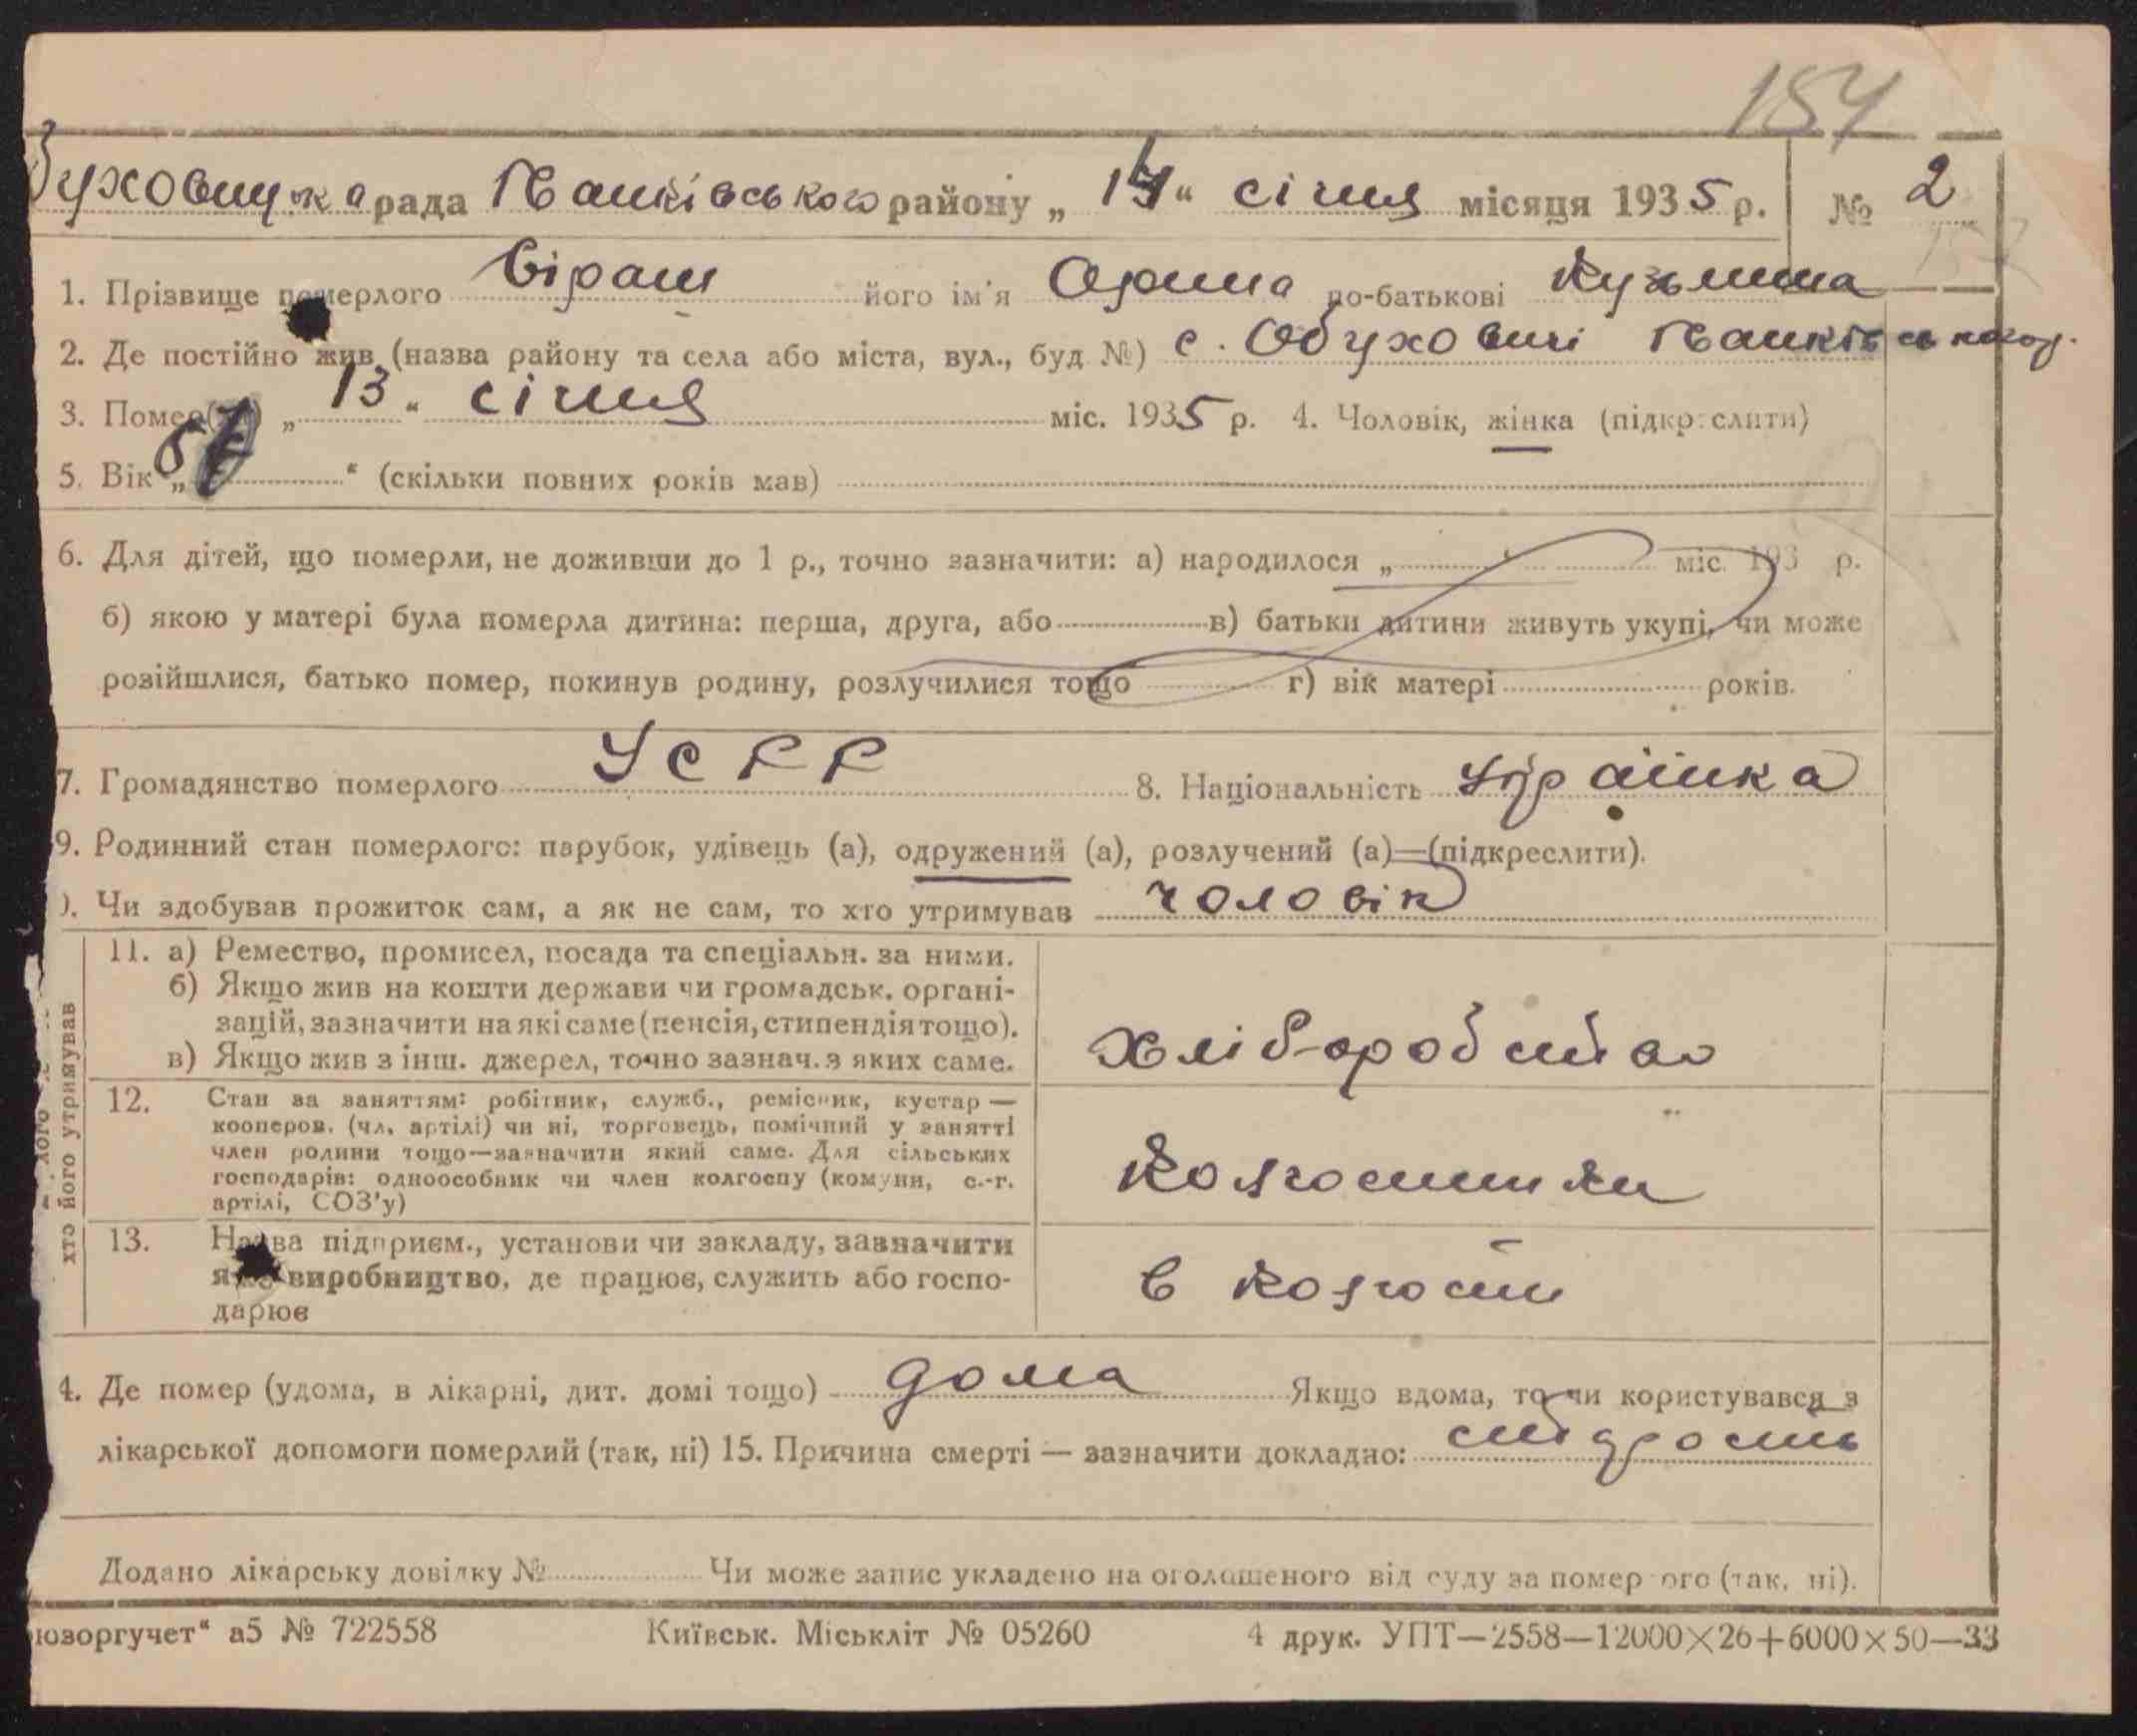 154
уховицька рада Іванківського району „ 14 “ січня місяця 1935 р. № 2
1. Прізвище померлого Віраш його ім'я Орина по-батькові Кузьмина
2. Де постійно жив (назва району та села або міста, вул., буд №) с. Обуховичі Іванківського р.
3. Помер(ла) „ 13 “ січня міс. 1935 р. 4. Чоловік, жінка (підкреслити)
5. Вік „ “ (скільки повних років мав)
6. Для дітей, що померли, не доживши до 1 р., точно зазначити: а) народилося „ міс. 193 р.
б) якою у матері була померла дитина: перша, друга, або в) батьки дитини живуть укупі, чи може
розійшлися, батько помер, покинув родину, розлучилися тощо г) вік матері років.
7. Громадянство померлого УСРР 8. Національність Українка
9. Родинний стан померлого: парубок, удівець (а), одружений (а), розлучений (а)—(підкреслити).
). Чи здобував прожиток сам, а як не сам, то хто утримував чоловік
хто його утримував
11. а) Ремество, промисел, посада та спеціальн. за ними.
б) Якщо жив на кошти держави чи громадськ. органі-
зацій, зазначити на які саме (пенсія, стипендія тощо).
в) Якщо жив з інш. джерел, точно зазнач. з яких саме.
12. Стан за заняттям: робітник, служб., ремісник, кустар —
кооперов. (чл. артілі) чи ні, торговець, помічний у занятті
член родини тощо—зазначити який саме. Для сільських
господарів: одноособник чи член колгоспу (комуни, с.-г.
артілі, СОЗ'у)
колгоспники
13. Назва підприєм., установи чи закладу, зазначити
його виробництво, де працює, служить або госпо-
дарює
в колгоспі
4. Де помер (удома, в лікарні, дит. домі тощо) дома Якщо вдома, то чи користувався з
лікарської допомоги померлий (так, ні) 15. Причина смерті — зазначити докладно: старость
Додано лікарську довідку № Чи може запис укладено на оголошеного від суду за померлого (так, ні).
юзоргучет“ а5 № 722558 Київськ. Міськліт № 05260 4 друк. УПТ—2558—12000×26+6000×50—33